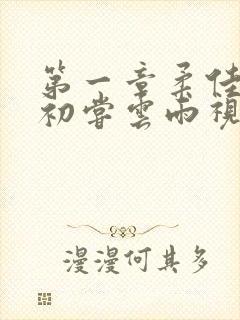 第一章柔佳
初尝雲雨視
漫漫何其多